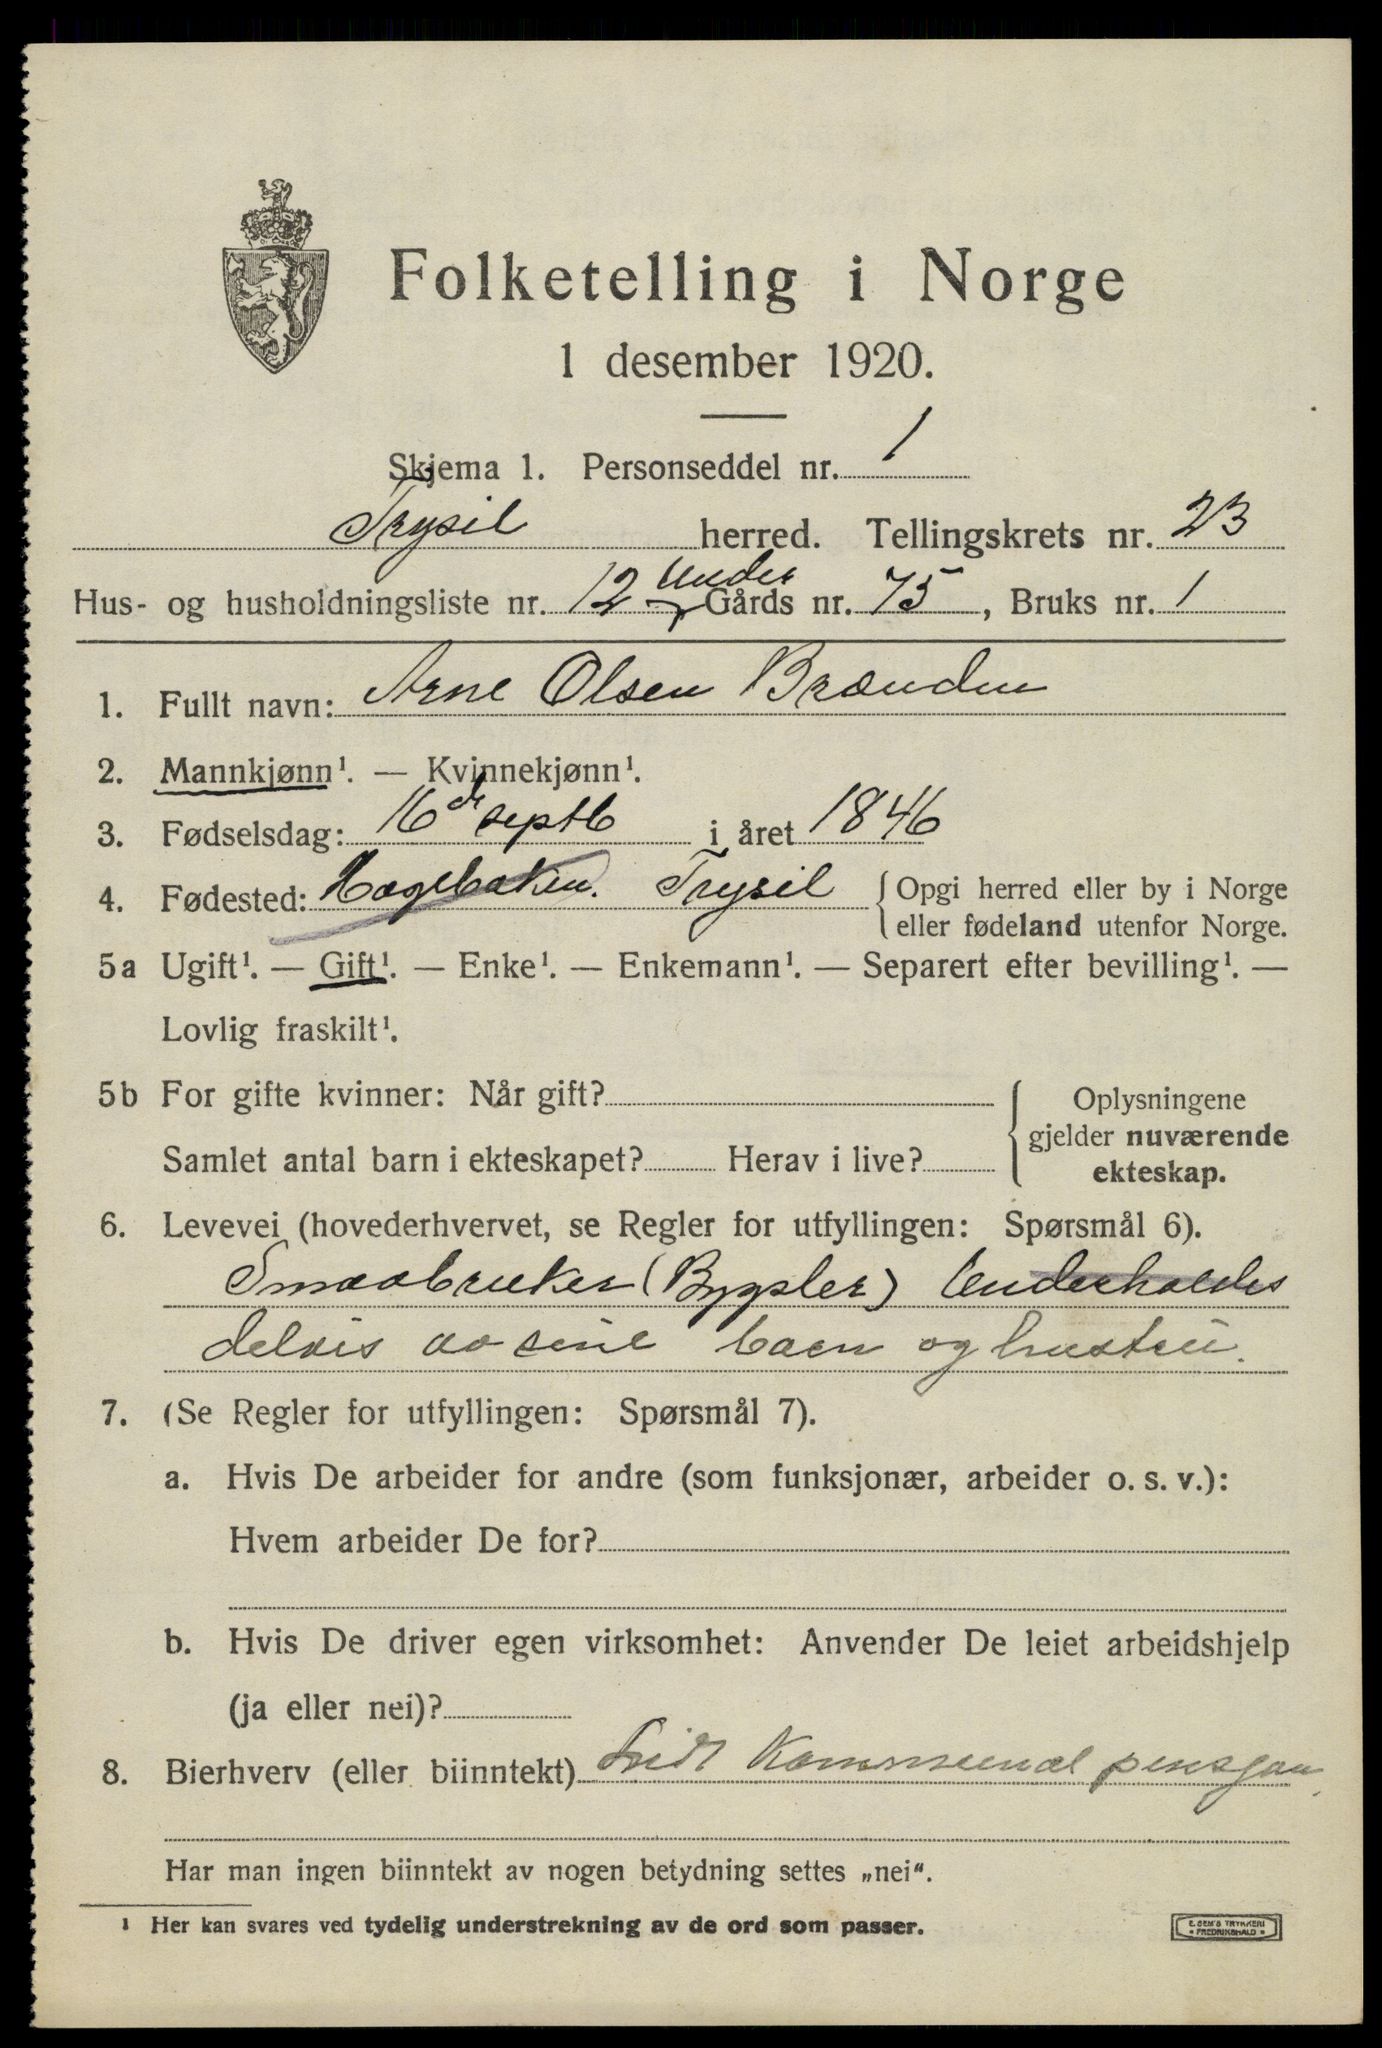 Folketelling i Norge
1 desember 1920.
Skjema 1. Personseddel nr. 1
Trysil herred. Tellingskrets nr. 23
Hus- og husholdningsliste nr. 12 under Gårds nr. 75, Bruks nr. 1
1. Fullt navn: Arne Olsen Brænden
2. Mannkjønn¹. — Kvinnekjønn¹.
3. Fødselsdag: 16de septb i året 1846
4. Fødested: Hagebaken. Trysil { Opgi herred eller by i Norge
eller fødeland utenfor Norge.
5a Ugift¹. — Gift¹. — Enke¹. — Enkemann¹. — Separert efter bevilling¹. —
Lovlig fraskilt¹.
5b For gifte kvinner: Når gift? Oplysningene
gjelder nuværende
Samlet antal barn i ekteskapet? Herav i live?
ekteskap.
6. Levevei (hovederhvervet, se Regler for utfyllingen: Spørsmål 6).
Smaabruker (Bygsler) Underholdes
delvis av sine barn og hustru.
7. (Se Regler for utfyllingen: Spørsmål 7).
a. Hvis De arbeider for andre (som funksjonær, arbeider o. s. v.):
Hvem arbeider De for?
b. Hvis De driver egen virksomhet: Anvender De leiet arbeidshjelp
(ja eller nei)?
8. Bierhverv (eller biinntekt) Lidt Kommunal pensjon.
Har man ingen biinntekt av nogen betydning settes „nei“.
¹ Her kan svares ved tydelig understrekning av de ord som passer.
E. SEM'S TRYKKERI
• FREDRIKSHALD •